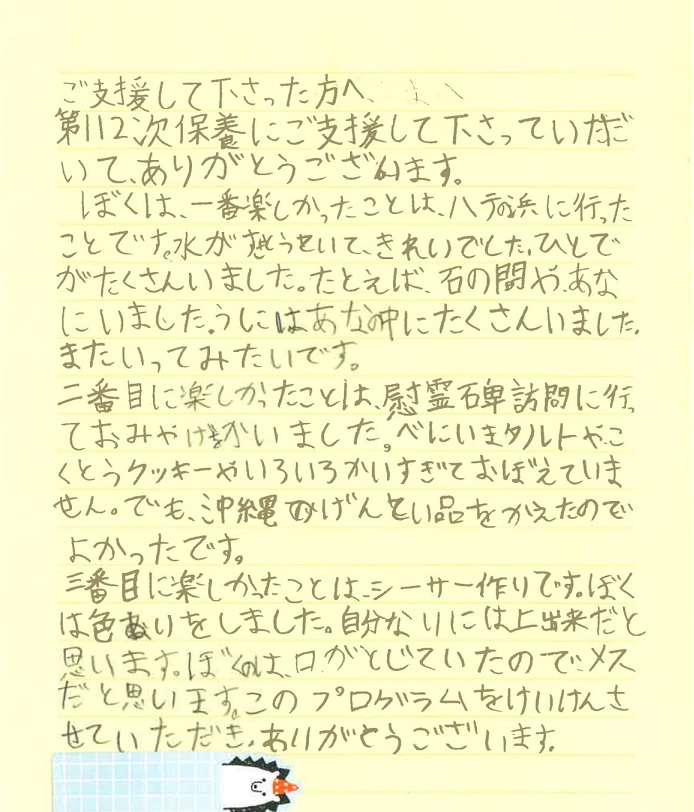 ご支援して下さった方へ、
第112次保養にご支援して下さっていただ
いて、ありがとうございます。
ぼくは、一番楽しかったことは、ハテの浜に行った
ことです。水がすきとうていて、きれいでした。ひとで
がたくさんいました。たとえば、石の間や、あな
にいました。うにはあなの中にたくさんいました。
またいってみたいです。
二番目に楽しかったことは、慰霊碑訪問に行っ
ておみやげをかいました。べにいもタルトやこ
くとうクッキーやいろいろかいすぎておぼえていま
せん。でも、沖縄のげんてい品をかえたので
よかったです。
三番目に楽しかったことは、シーサー作りです。ぼく
は色ぬりをしました。自分なりには上出来だと
思います。ぼくのは、口がとじていたので、メス
だと思います。このプログラムをけいけんさ
せていただき、ありがとうございます。